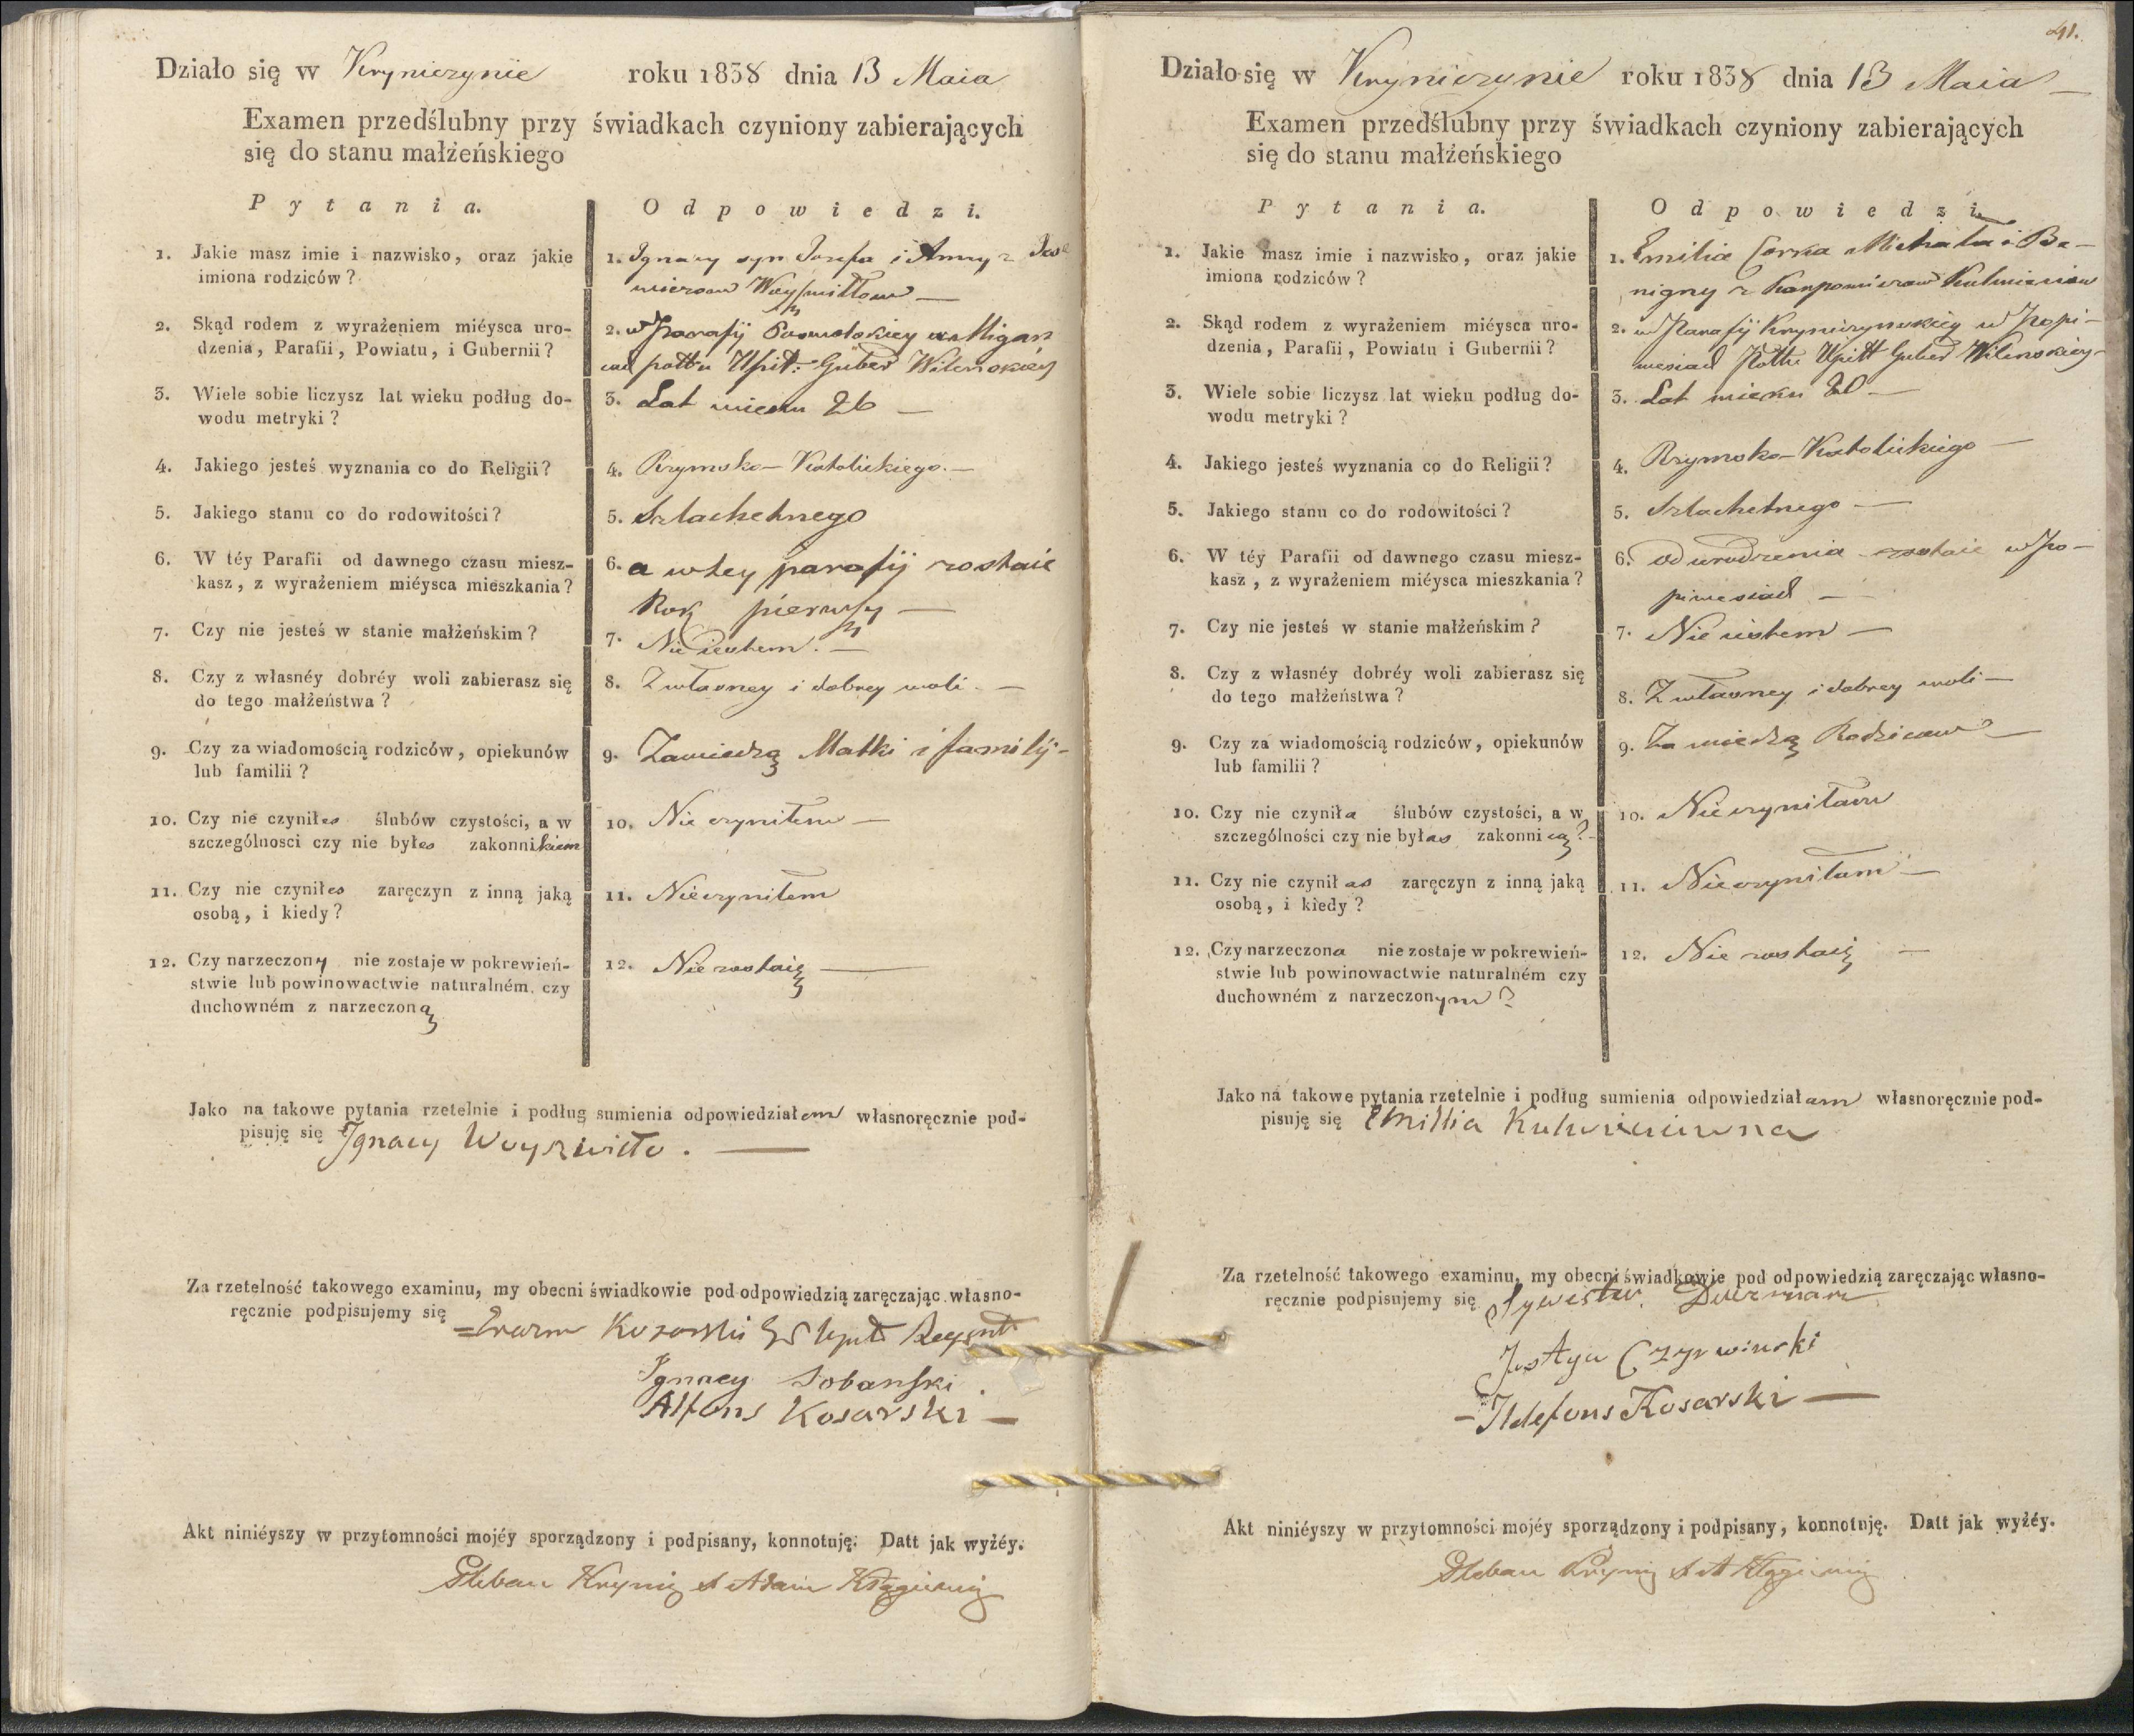 Działo się w Kryniczynie roku 1838 dnia 13 Maia
Examen przedślubny przy świadkach czyniony zabierających
się do stanu małżeńskiego
Pytania.
Odpowiedzi.
1. Jakie masz imie i nazwisko, oraz jakie
imiona rodziców?
1. Ignacy syn Jozefa i Anny z
Woyszwiłłow
2. Skąd rodem z wyrażeniem miéysca uro-
dzenia, Parafii, Powiatu, i Gubernii?
2. w Parafij
pottu Upit: Guber Wilenskiey
3. Wiele sobie liczysz lat wieku podług do-
wodu metryki?
3. Lat wieku 26
4. Jakiego jesteś wyznania co do Religii?
4. Rzymsko-Katolickiego.
5. Jakiego stanu co do rodowitości?
5. Szlachetnego
6. W téy Parafii od dawnego czasu miesz-
kasz, z wyrażeniem miéysca mieszkania?
6. a w tey parafij zostaie
Rok pierwszy
7. Czy nie jesteś w stanie małżeńskim?
7. Nie iestem.
8. Czy z własnéy dobréy woli zabierasz się
do tego małżeństwa?
8. Z własney i dobrey woli.
9. Czy za wiadomością rodziców, opiekunów
lub familii?
9. Za wiedzą Matki i familij
10. Czy nie czyniłes ślubów czystości, a w
szczególnosci czy nie byłes zakonnikiem
10. Nie czyniłem
11. Czy nie czyniłes zaręczyn z inną jaką
osobą, i kiedy?
11. Nieczyniłem
12. Czy narzeczony nie zostaje w pokrewień-
stwie lub powinowactwie naturalném, czy
duchowném z narzeczoną
12. Nie zostaię
Jako na takowe pytania rzetelnie i podług sumienia odpowiedziałem własnoręcznie pod-
pisuję się Ignacy Woyszwiłło.
Za rzetelność takowego examinu, my obecni świadkowie pod odpowiedzią zaręczając własno-
ręcznie podpisujemy się
Kosarski
Ignacy Sobański
Alfons Kosarski
Akt niniéyszy w przytomności mojéy sporządzony i podpisany, konnotuję: Datt jak wyżéy.
Pleban Adam
41.
Działo się w Kryniczynie roku 1838 dnia 13 Maia
Examen przedślubny przy świadkach czyniony zabierających
się do stanu małżeńskiego
Pytania.
Odpowiedzi.
1. Jakie masz imie i nazwisko, oraz jakie
imiona rodziców?
1. Emilia Corka Michała i Be-
nigny z
2. Skąd rodem z wyrażeniem miéysca uro-
dzenia, Parafii, Powiatu i Gubernii?
2. w Parafij Kryniczynskiey w Popi-
wesiach Pottu Upitt Guber Wilenskiey
3. Wiele sobie liczysz lat wieku podług do-
wodu metryki?
3. Lat wieku 20
4. Jakiego jesteś wyznania co do Religii?
4. Rzymsko-Katolickiego
5. Jakiego stanu co do rodowitości?
5. Szlachetnego
6. W téy Parafii od dawnego czasu miesz-
kasz, z wyrażeniem miéysca mieszkania?
6. od urodzenia zostaie w Po-
piwesiach
7. Czy nie jesteś w stanie małżeńskim?
7. Nie iestem
8. Czy z własnéy dobréy woli zabierasz się
do tego małżeństwa?
8. Z własney i dobrey woli
9. Czy za wiadomością rodziców, opiekunów
lub familii?
9. Za wiedzą Rodzicow
10. Czy nie czyniła ślubów czystości, a w
szczególności czy nie byłas zakonnicą?
10. Nie czyniłam
11. Czy nie czyniłas zaręczyn z inną jaką
osobą, i kiedy?
11. Nie czyniłam
12. Czy narzeczona nie zostaje w pokrewień-
stwie lub powinowactwie naturalném czy
duchowném z narzeczonym?
12. Nie zostaię
Jako na takowe pytania rzetelnie i podług sumienia odpowiedziałam własnoręcznie pod-
pisuję się Emillia
Za rzetelność takowego examinu, my obecni świadkowie pod odpowiedzią zaręczając własno-
ręcznie podpisujemy się Sylwester
Justyn Czyrwinski
Ildefons Kosarski
Akt niniéyszy w przytomności mojéy sporządzony i podpisany, konnotuję. Datt jak wyżéy.
Pleban